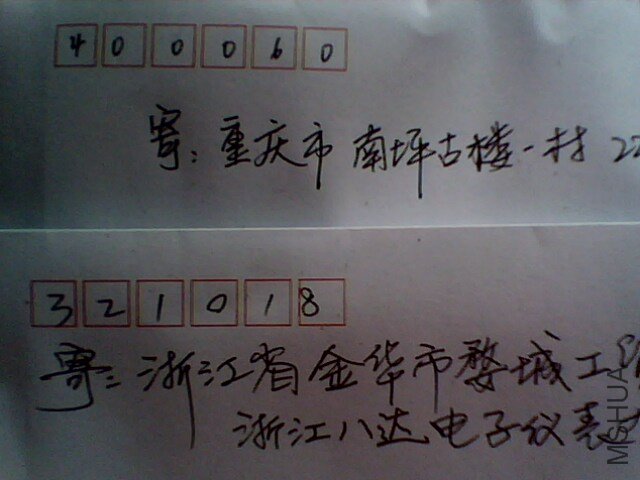 400060
寄：重庆市 南坪古楼一村 22
321018
寄：浙江省金华市婺城工
浙江八达电子仪表
MISHUA